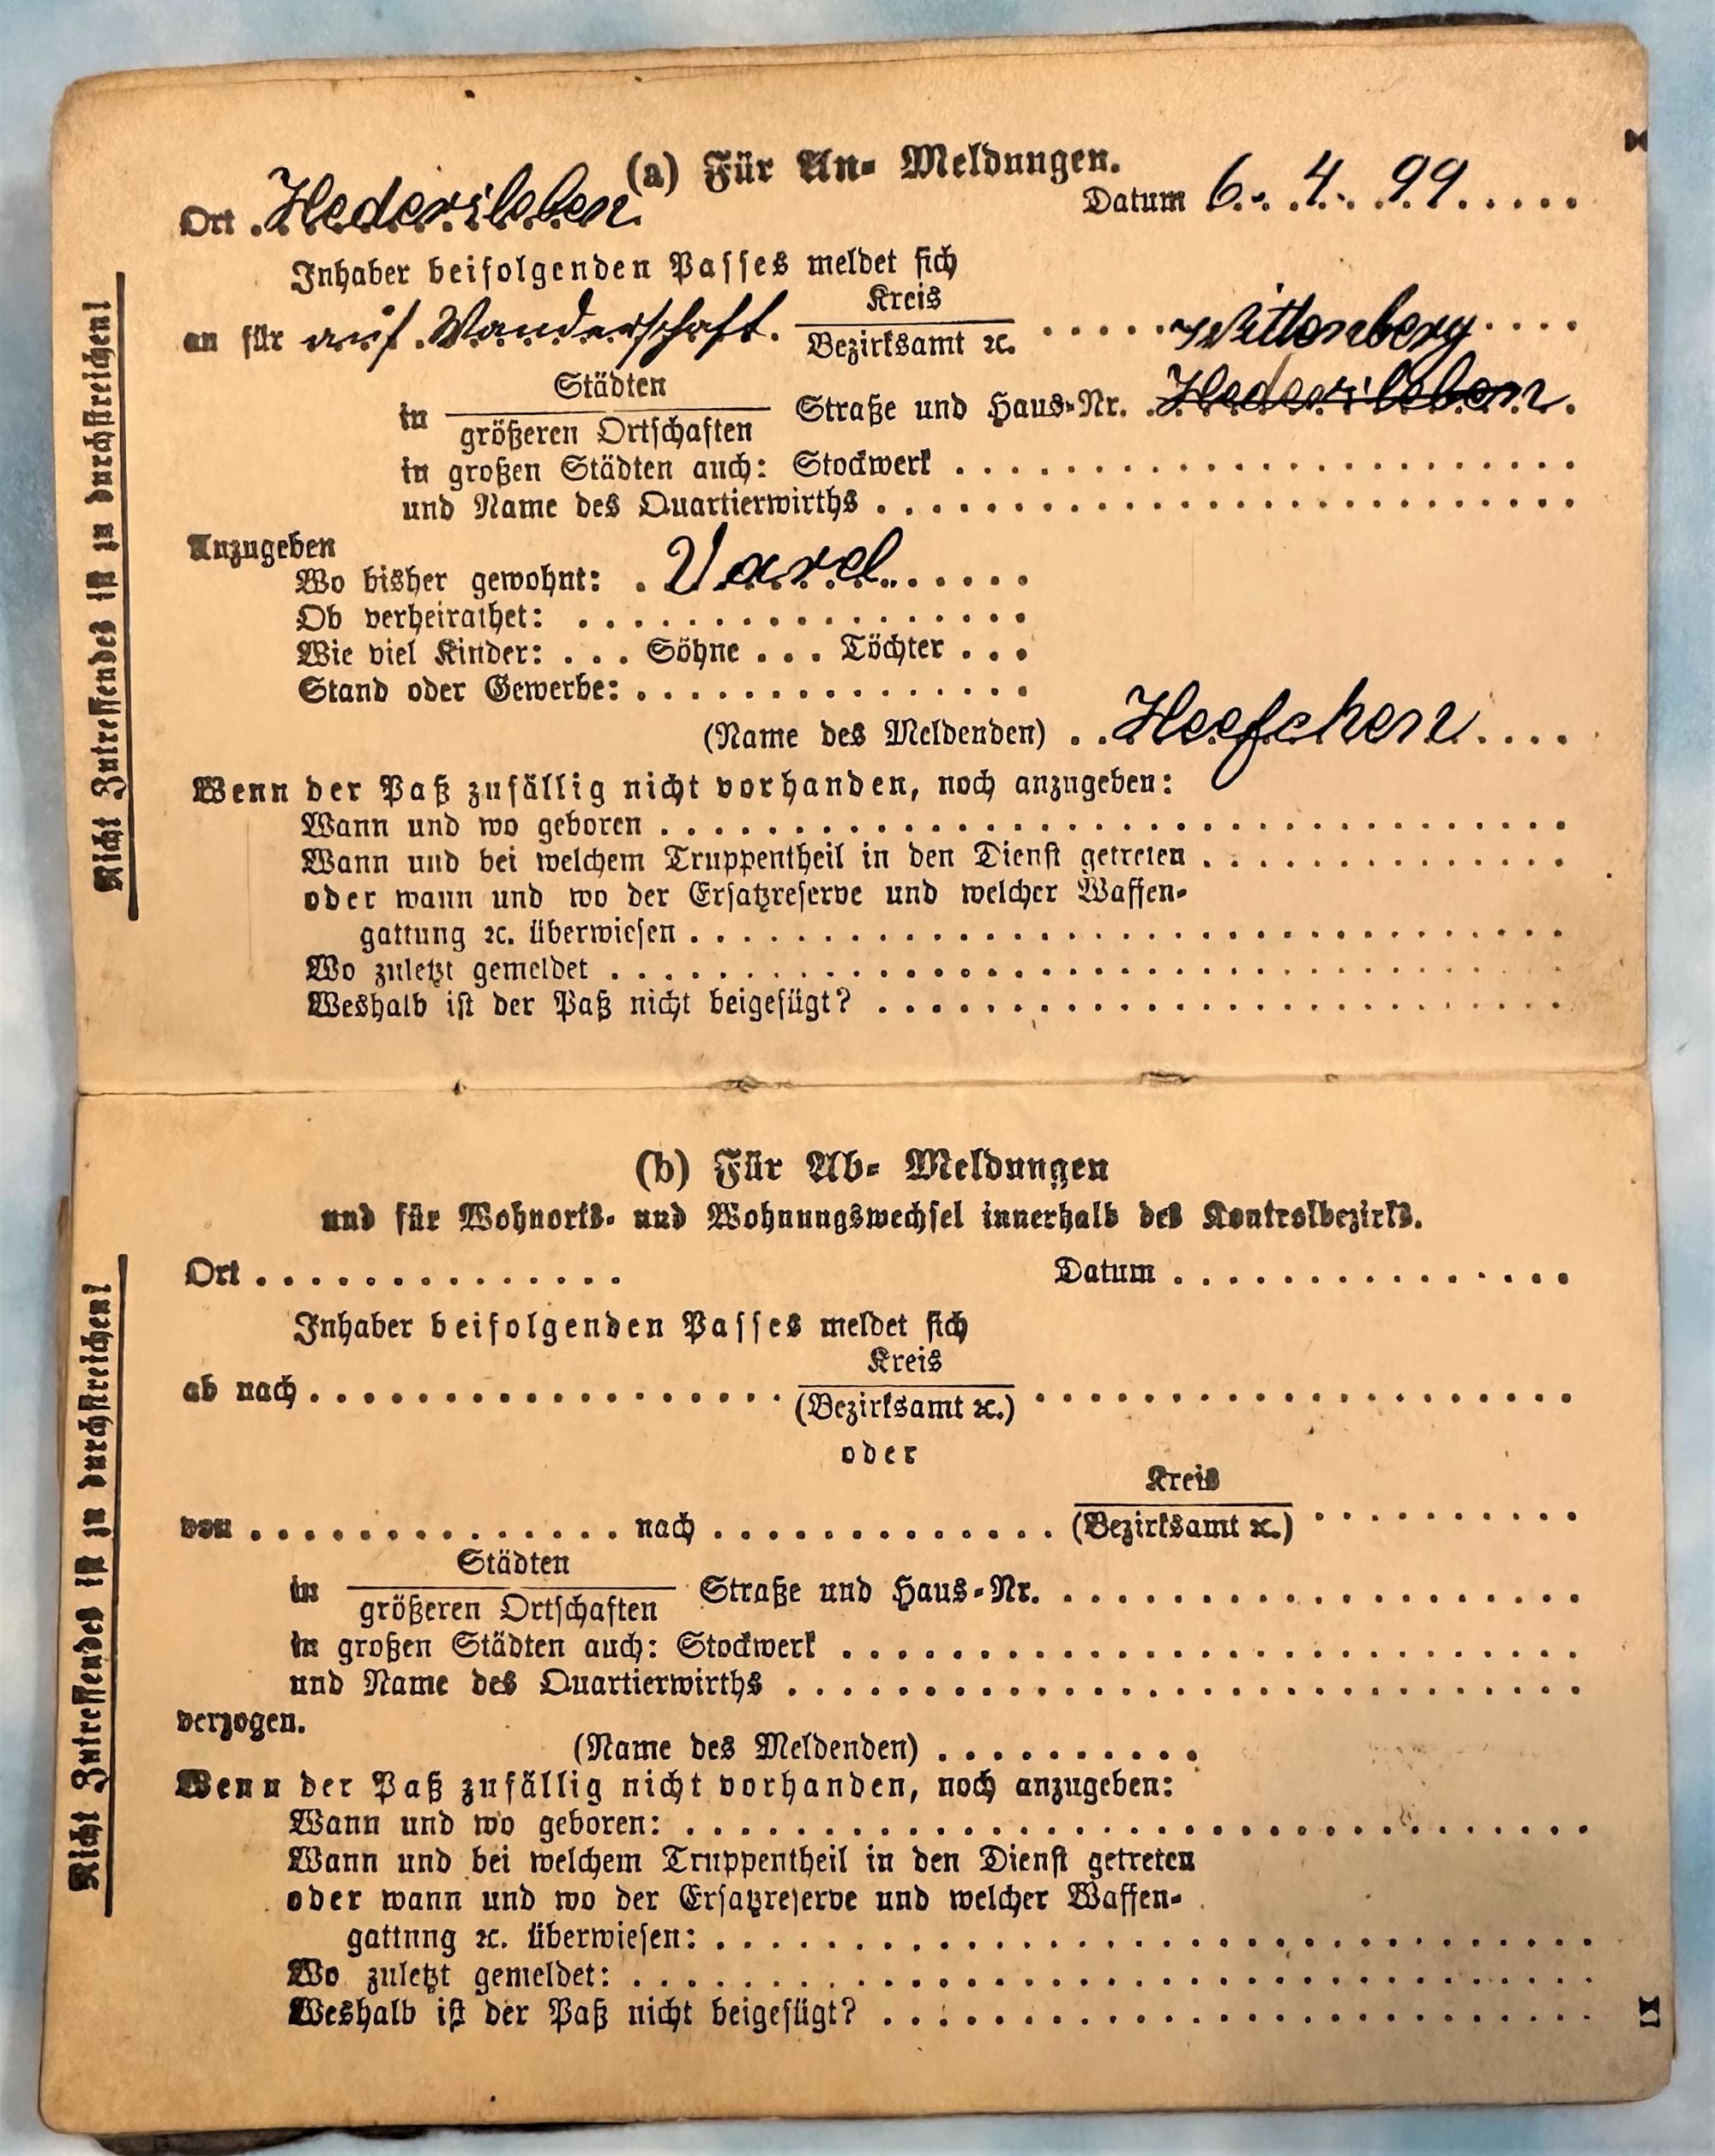 (a) Für An- Meldungen.
Ort Hedersleben Datum 6. 4. 99
Inhaber beifolgenden Passes meldet sich
an für auf Wanderschaft. Kreis
Bezirksamt ꝛc. Wittenberg
in Städten
größeren Ortschaften Straße und Haus-Nr. Hedersleben
in großen Städten auch: Stockwerk
und Name des Quartierwirths
Anzugeben
Wo bisher gewohnt: Varel
Ob verheirathet:
Wie viel Kinder: . . . Söhne . . . Töchter . . .
Stand oder Gewerbe:
(Name des Meldenden)
Wenn der Paß zufällig nicht vorhanden, noch anzugeben:
Wann und wo geboren
Wann und bei welchem Truppentheil in den Dienst getreten
oder wann und wo der Ersatzreserve und welcher Waffen-
gattung ꝛc. überwiesen
Wo zuletzt gemeldet
Weshalb ist der Paß nicht beigefügt?
Nicht Zutreffendes ist zu durchstreichen!
(b) Für Ab- Meldungen
und für Wohnorts- und Wohnungswechsel innerhalb des Kontrolbezirks.
Ort Datum
Inhaber beifolgenden Passes meldet sich
ab nach Kreis
(Bezirksamt ꝛc.)
oder
von nach Kreis
(Bezirksamt ꝛc.)
in Städten
größeren Ortschaften Straße und Haus-Nr.
in großen Städten auch: Stockwerk
und Name des Quartierwirths
verzogen.
(Name des Meldenden)
Wenn der Paß zufällig nicht vorhanden, noch anzugeben:
Wann und wo geboren:
Wann und bei welchem Truppentheil in den Dienst getreten
oder wann und wo der Ersatzreserve und welcher Waffen-
gattung ꝛc. überwiesen:
Wo zuletzt gemeldet:
Weshalb ist der Paß nicht beigefügt?
Nicht Zutreffendes ist zu durchstreichen!